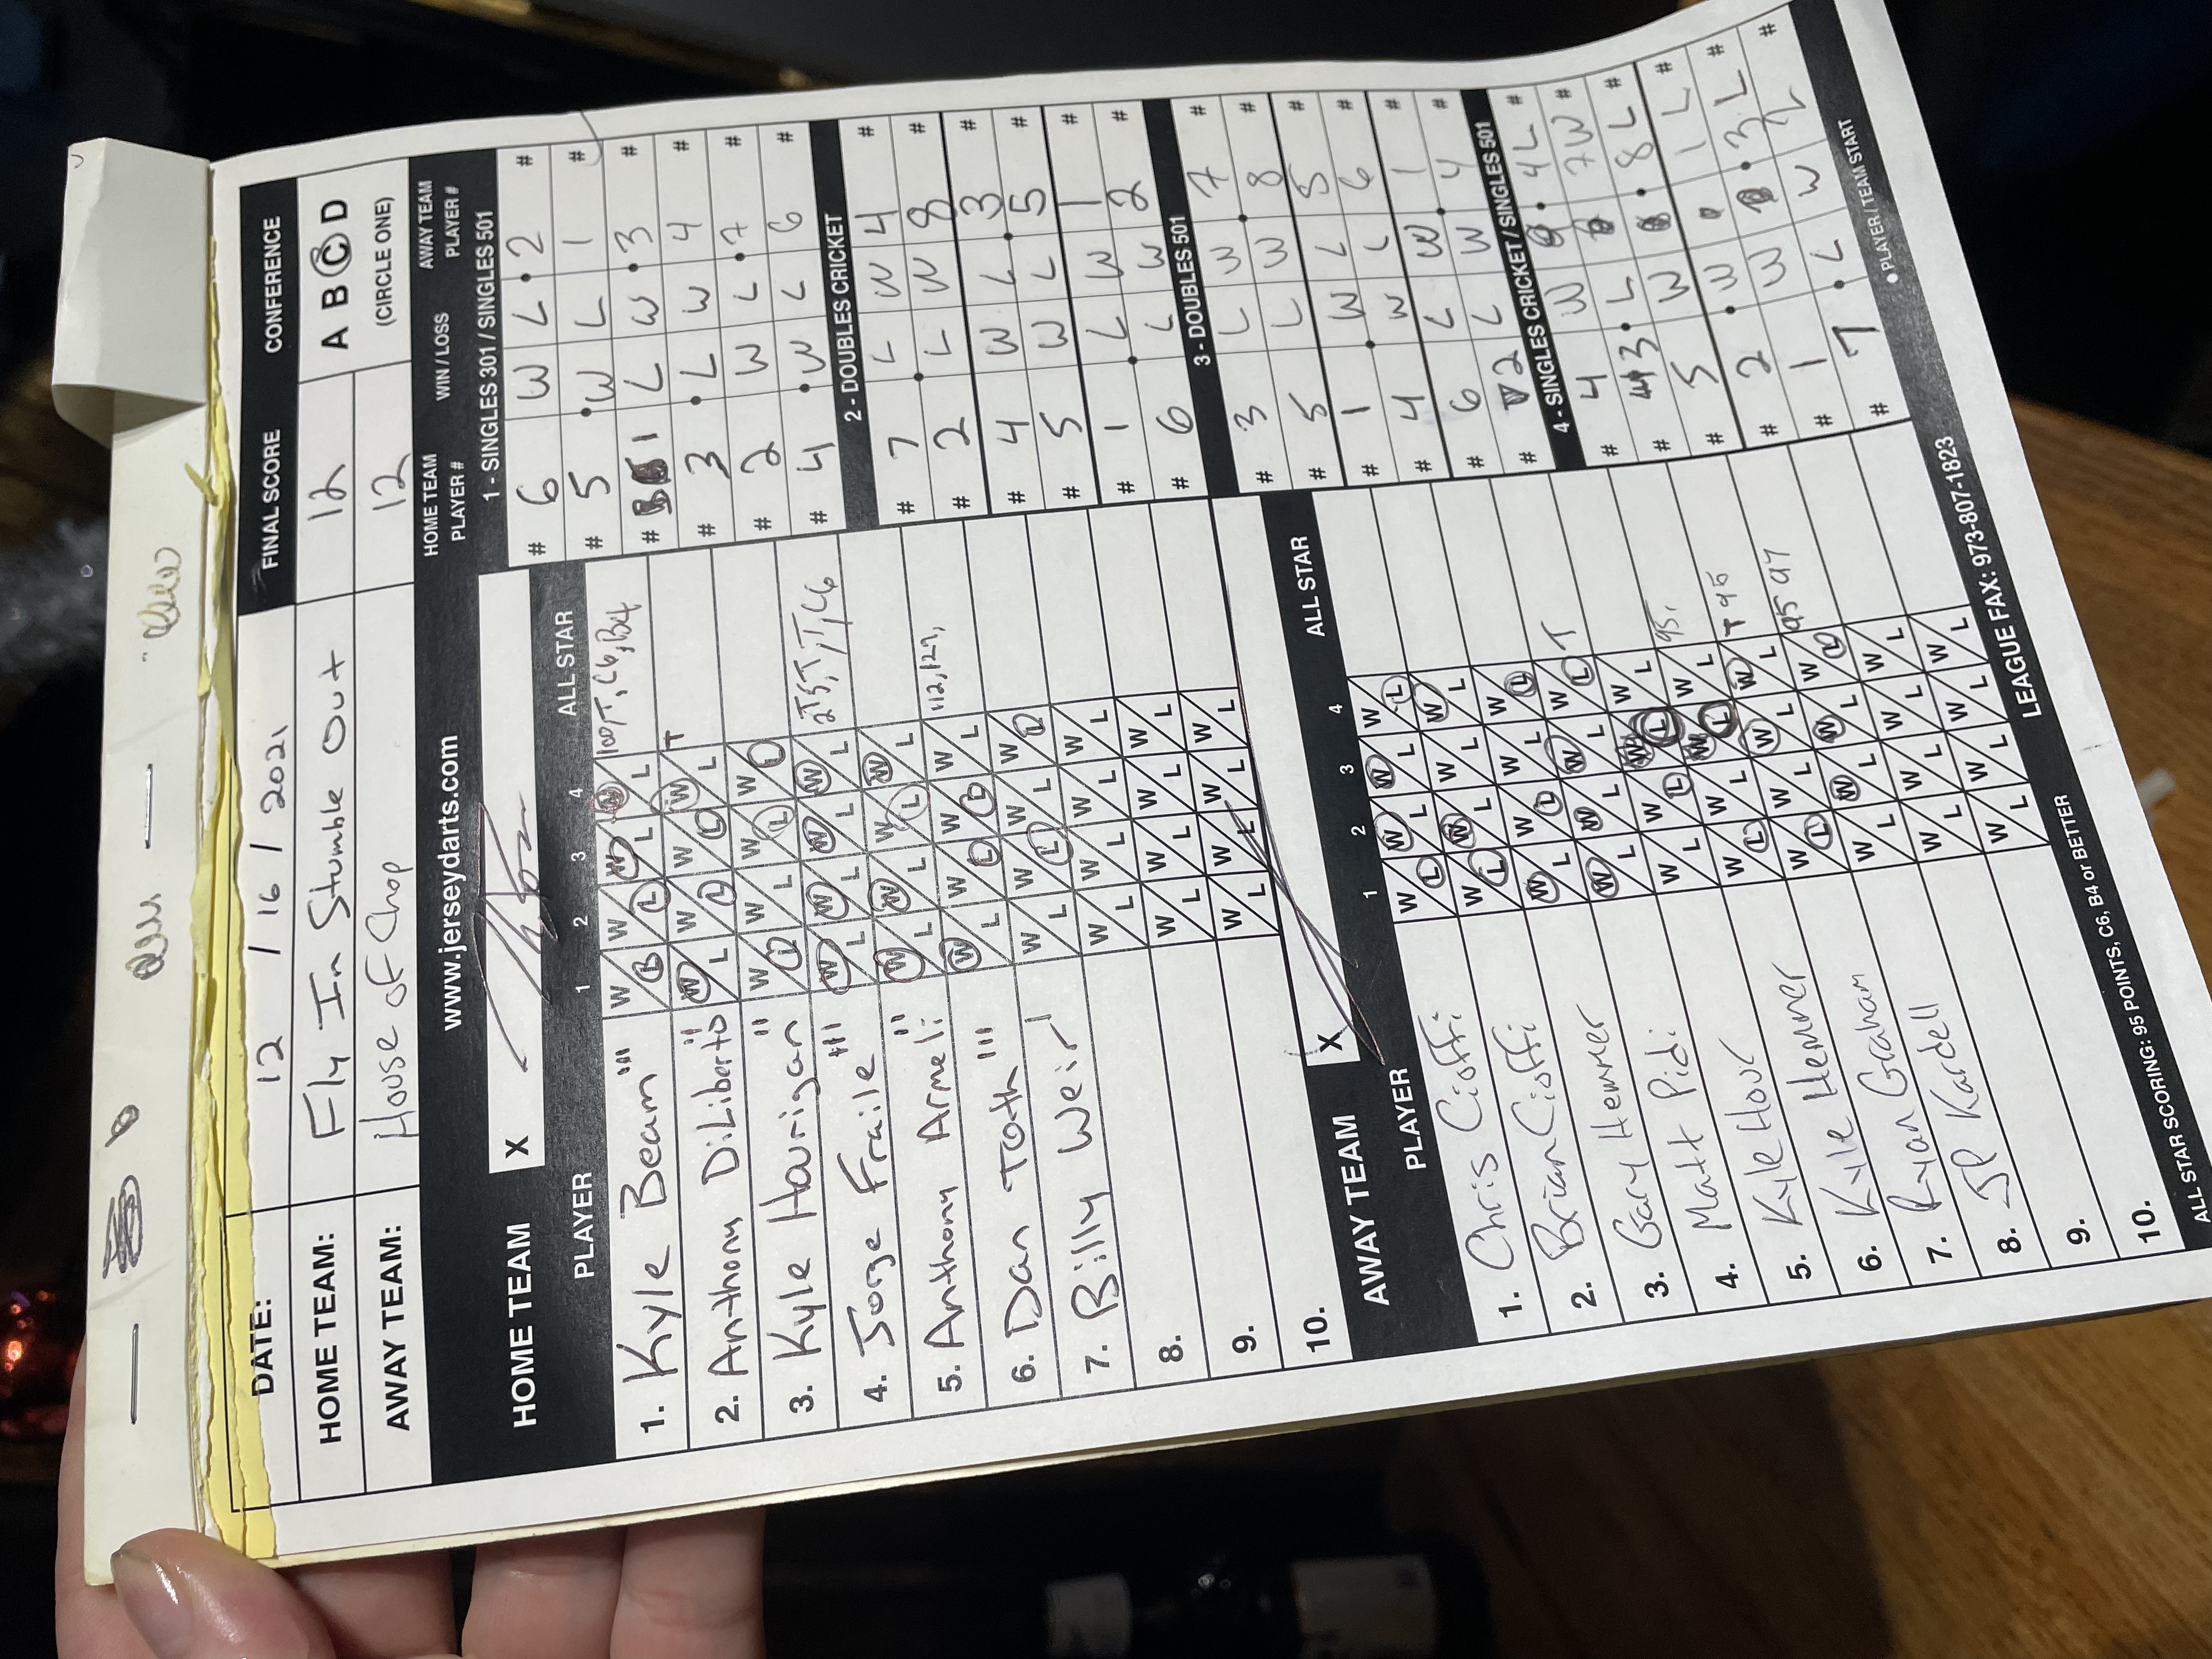 DATE: 12 / 16 / 2021 FINAL SCORE CONFERENCE
HOME TEAM: Fly In Stumble Out 12 A B C D
AWAY TEAM: House of Chop 12 (CIRCLE ONE)
www.jerseydarts.com
HOME TEAM X
PLAYER 1 2 3 4 ALL STAR
1. Kyle Beam "" W L W L W L W L 100T, C6, B4
2. Anthony DiLiberto " W L W L W L W L T
3. Kyle Hourigan " W L W L W L W L
4. Jorge Fraile "" W L W L W L W L 2T5, T, T, C6
5. Anthony Armeli " W L W L W L W L
6. Dan Toth "" W L W L W L W L 112, 127,
7. Billy Weir W L W L W L W L
8. W L W L W L W L
9. W L W L W L W L
10. W L W L W L W L
AWAY TEAM X
PLAYER 1 2 3 4 ALL STAR
1. Chris Cioffi W L W L W L W L
2. Brian Cioffi W L W L W L W L
3. Gary Hemmer W L W L W L W L
4. Matt Pidi W L W L W L W L T
5. Kyle Hour W L W L W L W L
6. Kyle Hemmer W L W L W L W L 95,
7. Ryan Graham W L W L W L W L T 95
8. JP Kardell W L W L W L W L 95 97
9. W L W L W L W L
10. W L W L W L W L
ALL STAR SCORING: 95 POINTS, C6, B4 or BETTER
LEAGUE FAX: 973-807-1823
HOME TEAM PLAYER # WIN / LOSS AWAY TEAM PLAYER #
1 - SINGLES 301 / SINGLES 501
# 6 W L 2 #
# 5 W L 1 #
# 1 L W 3 #
# 3 L W 4 #
# 2 W L 7 #
# 4 W L 6 #
2 - DOUBLES CRICKET
# 7 L W 4 #
# 2 L W 8 #
# 4 W L 3 #
# 5 W L 5 #
# 1 L W 1 #
# 6 L W 2 #
3 - DOUBLES 501
# 3 L W 7 #
# 5 L W 8 #
# 1 W L 5 #
# 4 W L 6 #
# 6 L W 1 #
# 2 L W 4 #
4 - SINGLES CRICKET / SINGLES 501
# 4 W 4 L #
# 3 L 7 W #
# 5 W 8 L #
# 2 W 1 L #
# 1 W 3 L #
# 7 L W #
• PLAYER / TEAM START